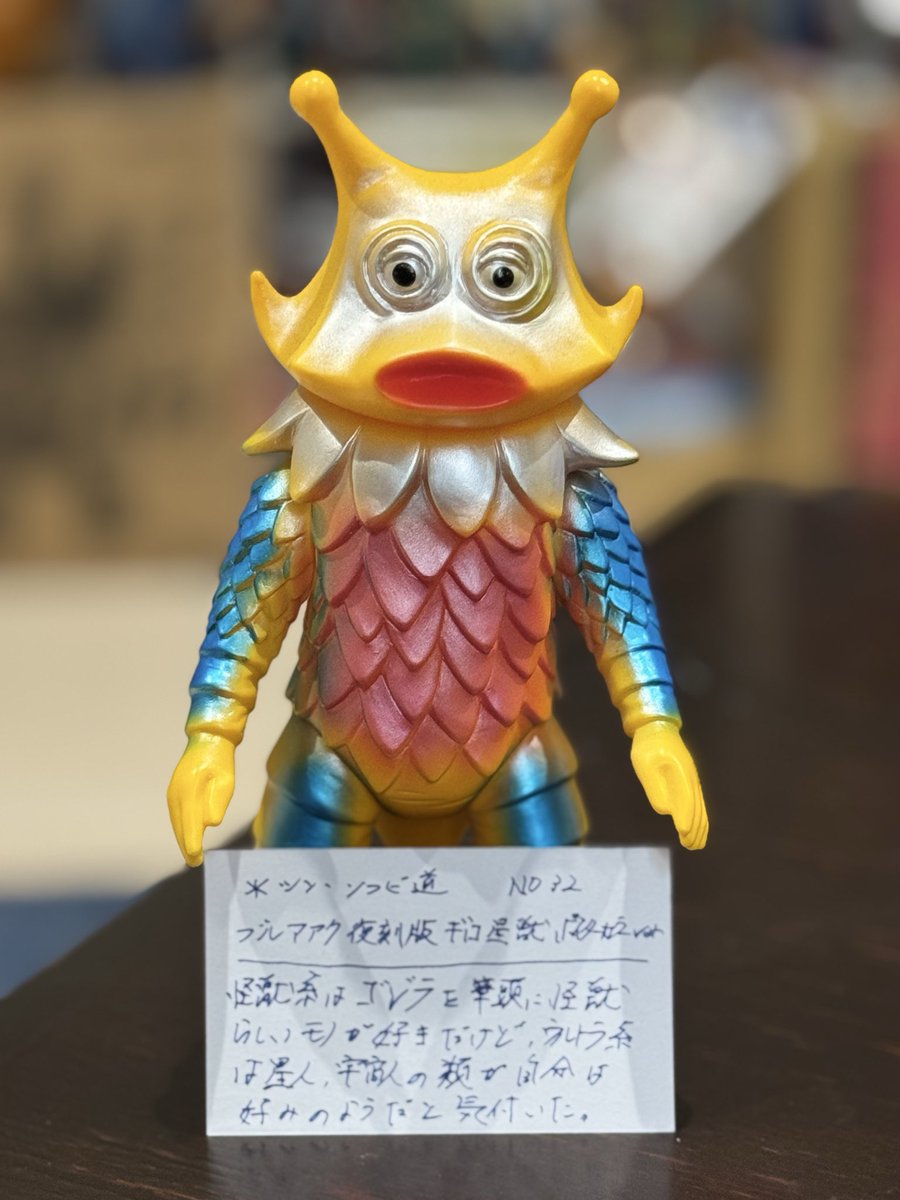 *ツン・ソフビ道 NO 32
ブルマァク復刻版 ギロ星獣 ver
怪獣系はゴジラを筆頭に怪獣
らしいモノが好きだけど、ウルトラ系
は星人、宇宙人の類が自分は
好みのようだと気付いた。